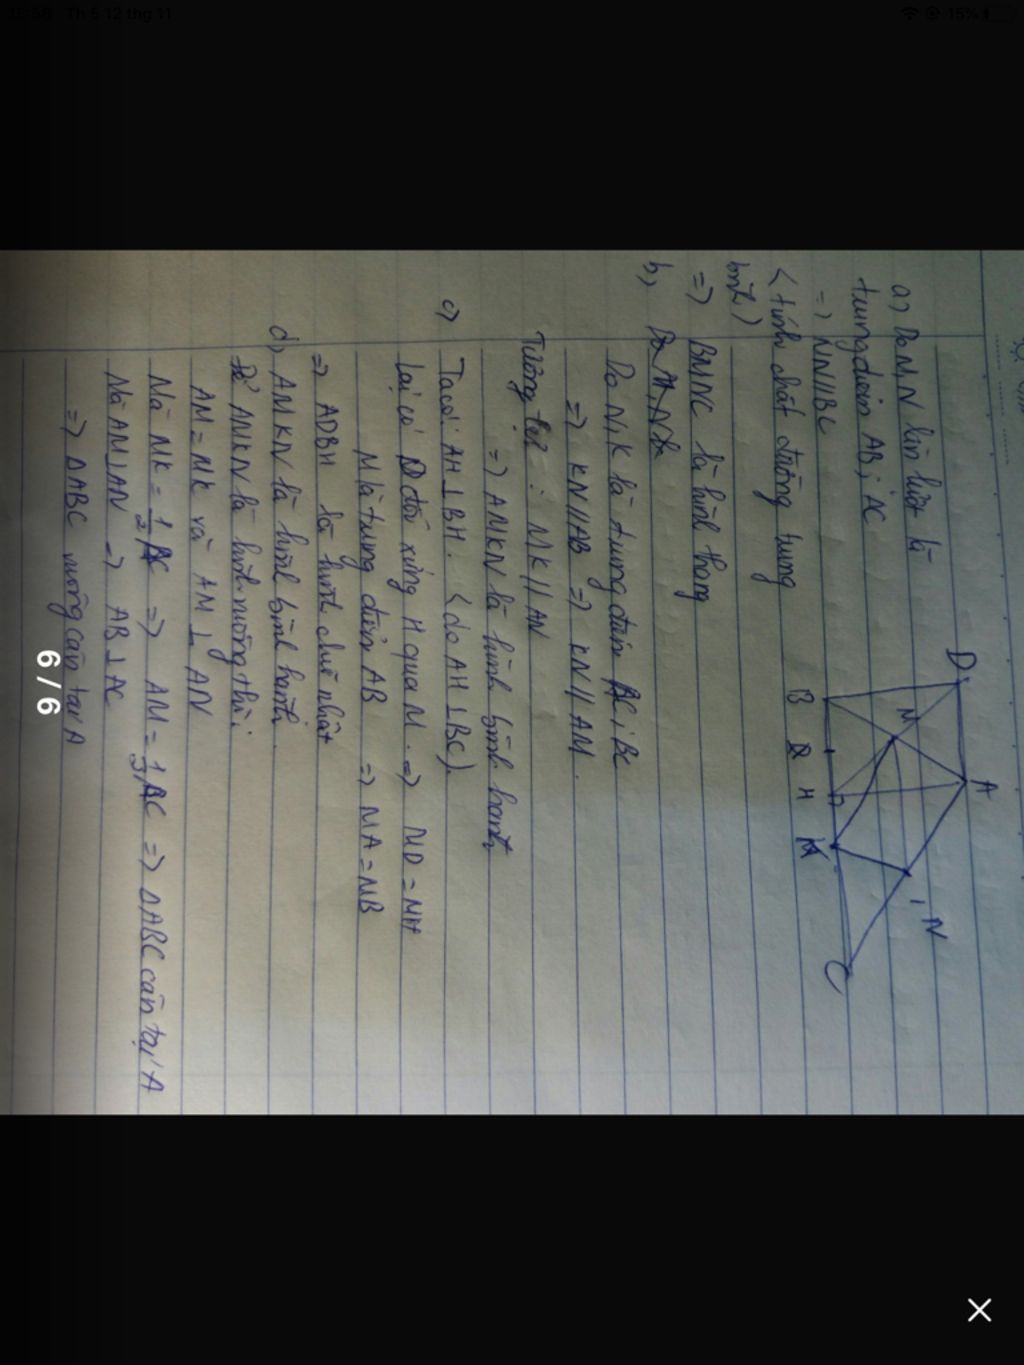 Th 5 12 thg 11
15%
a) Do M, N lần lượt là
trung điểm AB; AC
=> MN // BC
< tính chất đường trung
bình )
=> BMNC là hình thang
b,
Do N, K là trung điểm AC; BC
=> KN // AB => KN // AM.
Tương tự : MK // AN
=> AMKN là hình bình hành
c) Ta có: AH ⊥ BH. < do AH ⊥ BC).
Lại có D đối xứng H qua M. => MD = MH
M là trung điểm AB => MA = MB
=> ADBH là hình chữ nhật
d, AMKN là hình bình hành.
Để AMKN là hình vuông thì:
AM = MK và AM ⊥ AN
Mà MK = 1/2 AC => AM = 1/2 AC => ΔABC cân tại A
Mà AM ⊥ AN => AB ⊥ AC
=> ΔABC vuông cân tại A
D
A
B
M
H
K
N
C
6 / 6